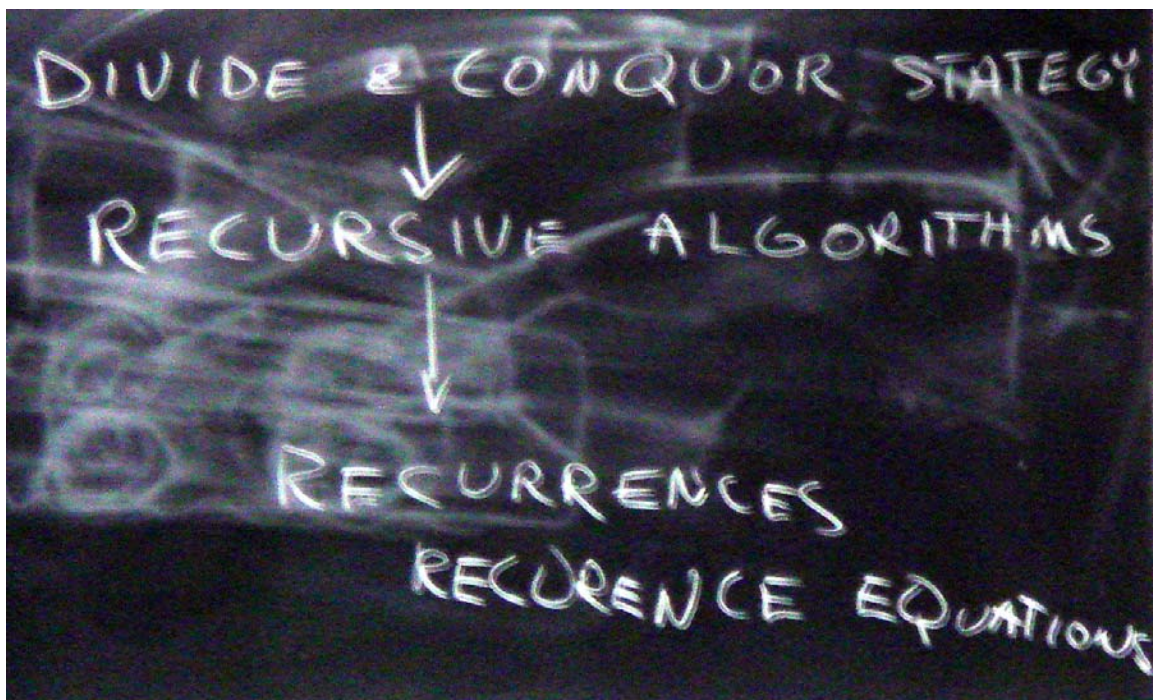 DIVIDE & CONQUOR STATEGY
RECURSIVE ALGORITHMS
RECURRENCES
RECURENCE EQUATIONS